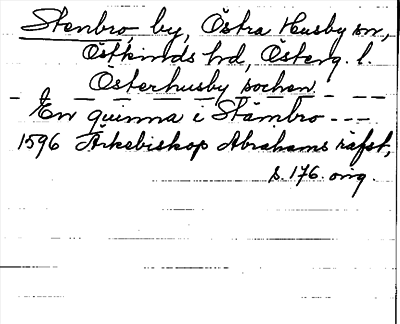 Stenbro, by, Östra Husby sn,
Östkinds hd, Österg. l.
Österhusby sochen
En quinna i Stambro ---
1596 Ärkebiskop Abrahams räfst,
s. 176. orig.